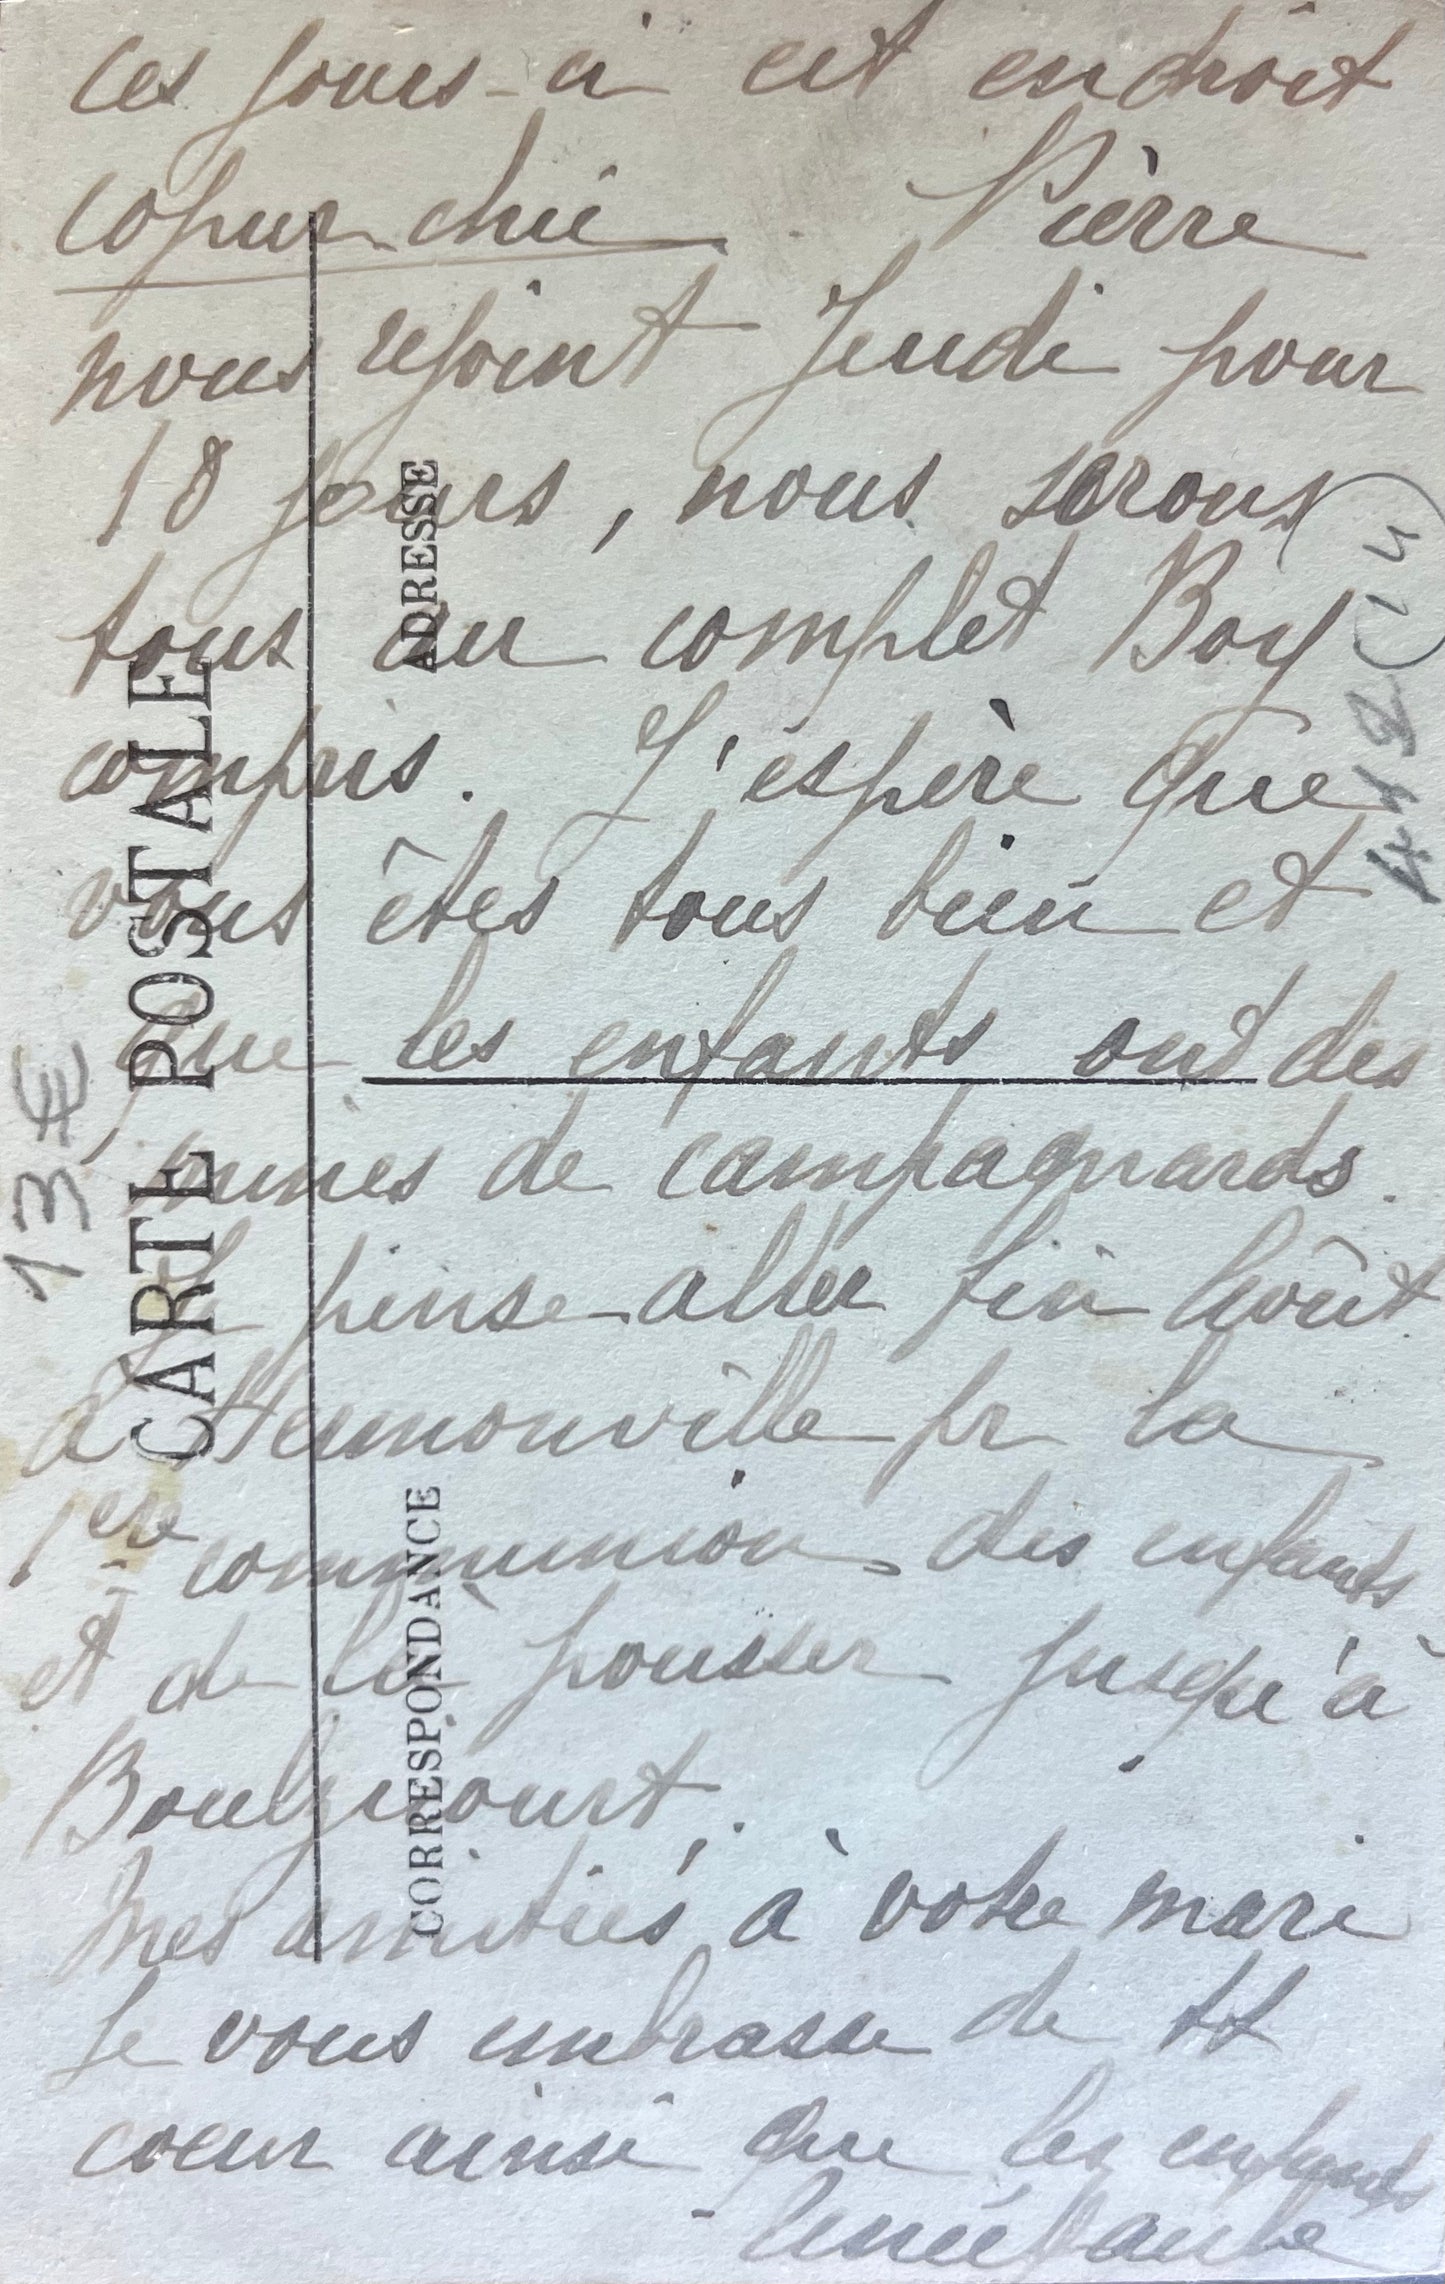 ces jours-ci cet endroit
copurchic Pierre
nous rejoint Jeudi pour
18 jours, nous serons
tous au complet Boy
compris. J'espère que
vous êtes tous bien et
que les enfants ont des
mines de campagnards.
Je pense aller fin Août
à Hermonville pr la
1ère communion des enfants
et de là pousser jusqu'à
Boulzicourt.
Mes amitiés à votre mari
Je vous embrasse de tt
cœur ainsi que les enfants
CARTE POSTALE
CORRESPONDANCE
ADRESSE
13 €